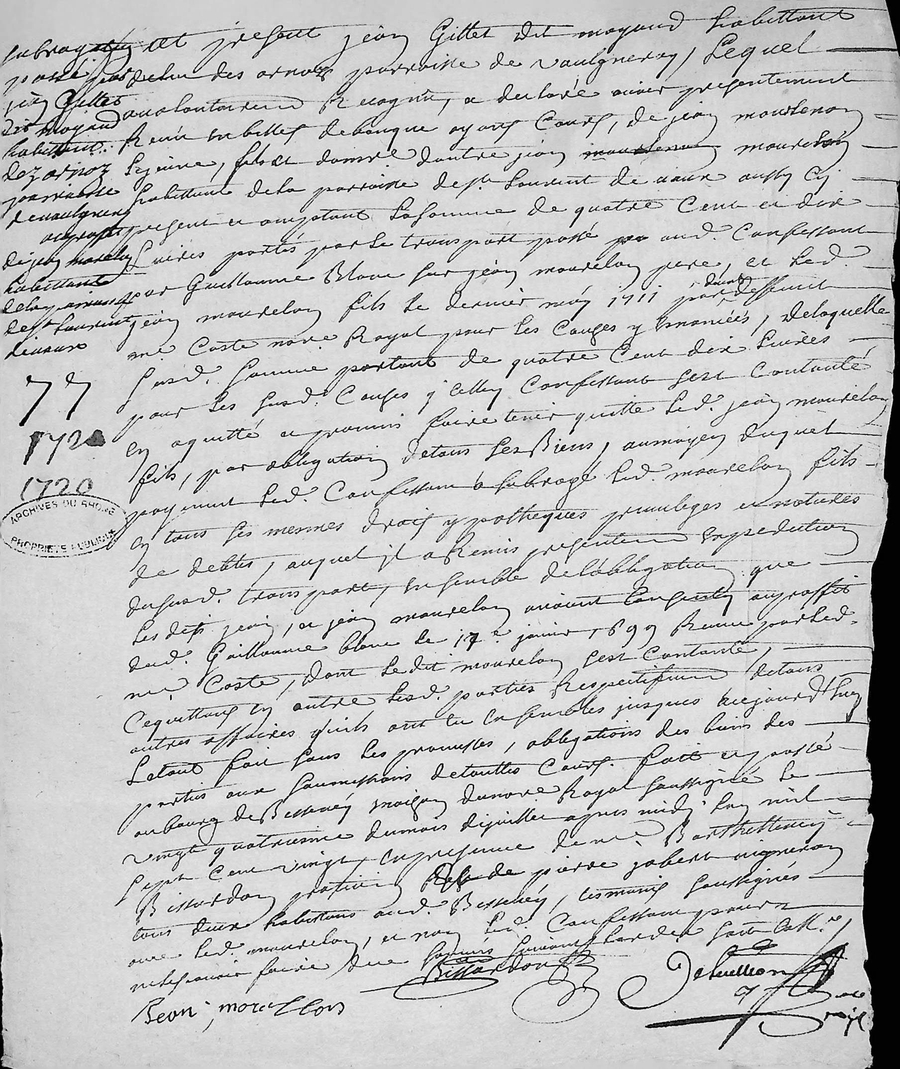 subrogation
passé par
jean Gillet
dit moyaud
habittant
dez arnoz
parroisse
de vaulgneray
au proffit
de jean morellon
habittant
de la parroisse
de st laurent
de vaux
77
1720
1720
ARCHIVES DU RHONE
PROPRIÉTÉ PUBLIQUE
est present jean Gillet dit moyaud habittant
du lieu des arnoz parroisse de vaulgneray, Lequel
a declaré avoir presentement
Receu en belles de banque ayant Cours, de jean mourelon
Lejeune, fils et donné dautre jean mourelon
habittant de la parroisse de st Laurent de vaux aussy cy
present et acceptant La somme de quatre Cent et dix
Livres portés par le transport passé aud. Confessant
par Guillaume Blanc sur jean mourelon pere, et led.
jean mourelon fils le dernier may 1711 par devant
me Coste nore Royal pour les Causes y enoncées, de laquelle
susd. somme portant de quatre Cent dix Livres
pour les susd. Causes ycelluy Confessant sest Contanté
en a quitté et promis faire tenir quitte led. jean mourelon
fils, par obligation de tous ses Biens, au moyen duquel
payement led. Confessant a subrogé led. mourelon fils
en tous les mesmes droits ypotheques privileges et natures
de debtes, auquel il a Remis presentement expedition
du susd. transport, ensemble de lobligation que
lesdits jean, et jean mourelon avoient Consenty au proffit
dud. Guillaume blanc le 17e janvier 1699 Receue par led.
me Coste, dont ledit mourelon sest Contanté,
Ce quittant en outre lesd. parties Respectivement de tous
autres affaires quils ont eu ensembles jusques aujourdhuy
Letout fait sous les promesses, obligations des biens des
parties aux soumissions de touttes Cours. fait et passé
au bourg de Bessenay maison du nore Royal soussigné le
vingt quatriesme du mois de juillet apres midy Lan mil
sept Cent vingt, en presence de me Barthellemy
Bissardon praticien de pierre jabert vigneron
tous deux habittans aud. Bessenay, tesmoins soussignés
avec led. mourelon, et non led. Confessant pour
ne scavoir faire de ce
Bissardon
jean morellon